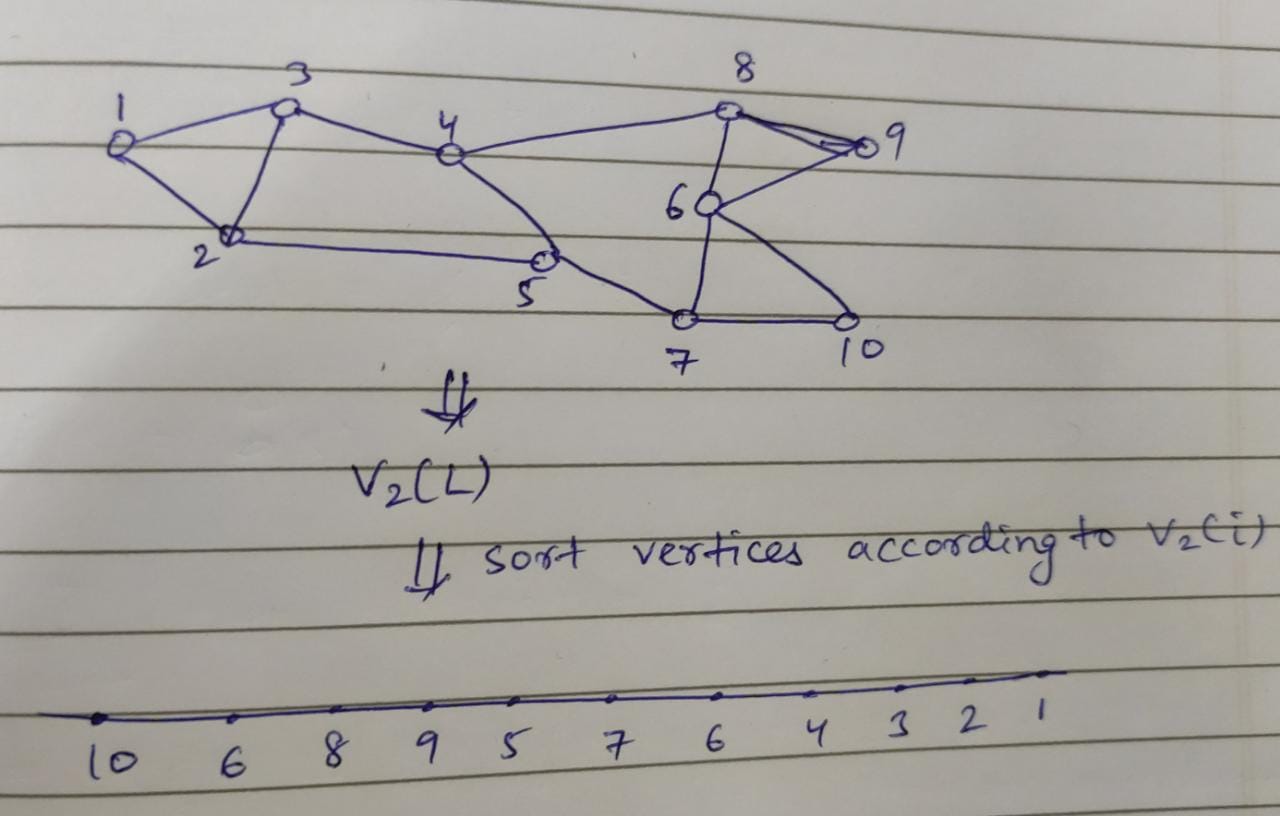 8
3
1
4
9
6
2
5
7
10
⇓
V₂(L)
⇓ sort vertices according to V₂(i)
10 6 8 9 5 7 6 4 3 2 1